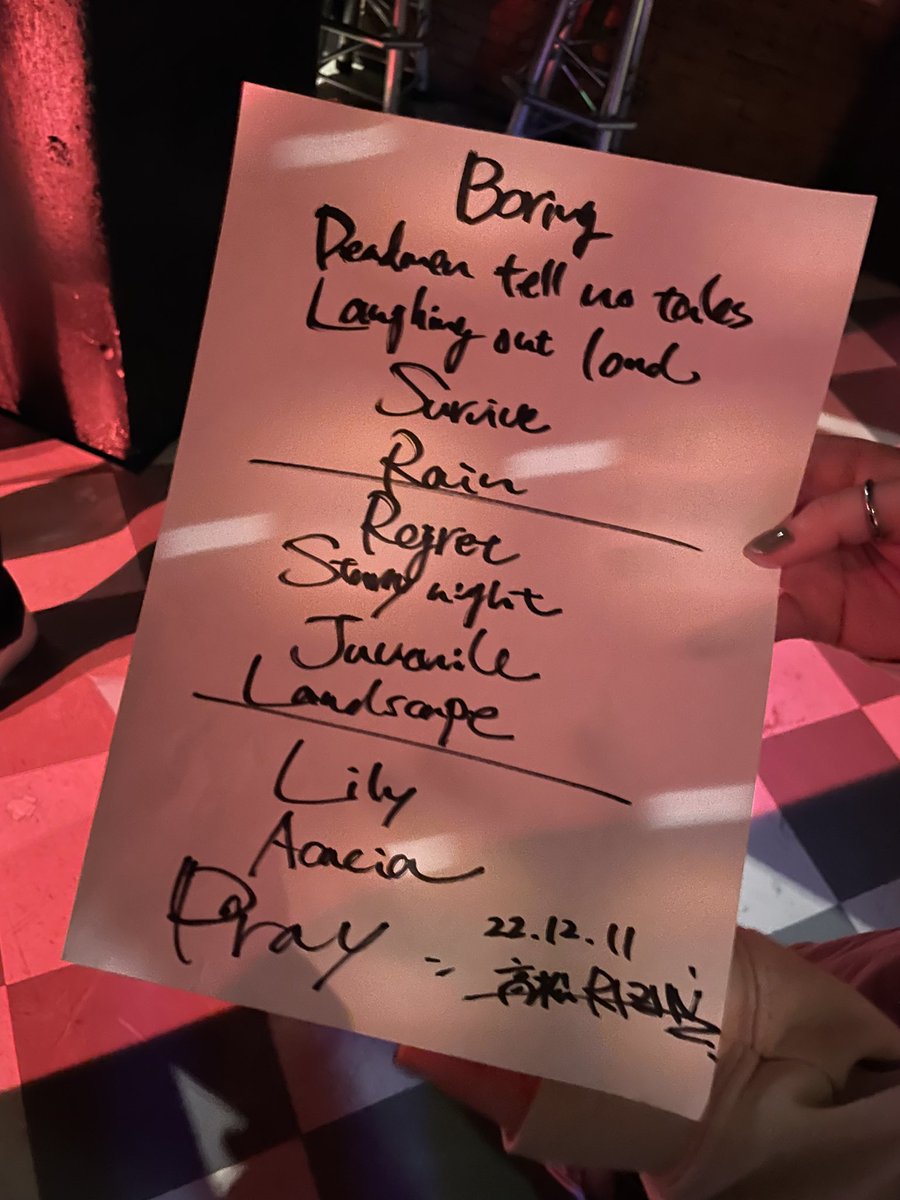 Boring
Deadmen tell no tales
Laughing out loud
Survive
Rain
Regret
Starry night
Juvenile
Landscape
Lily
Acacia
Pray
22.12.11
高松 RIZIN